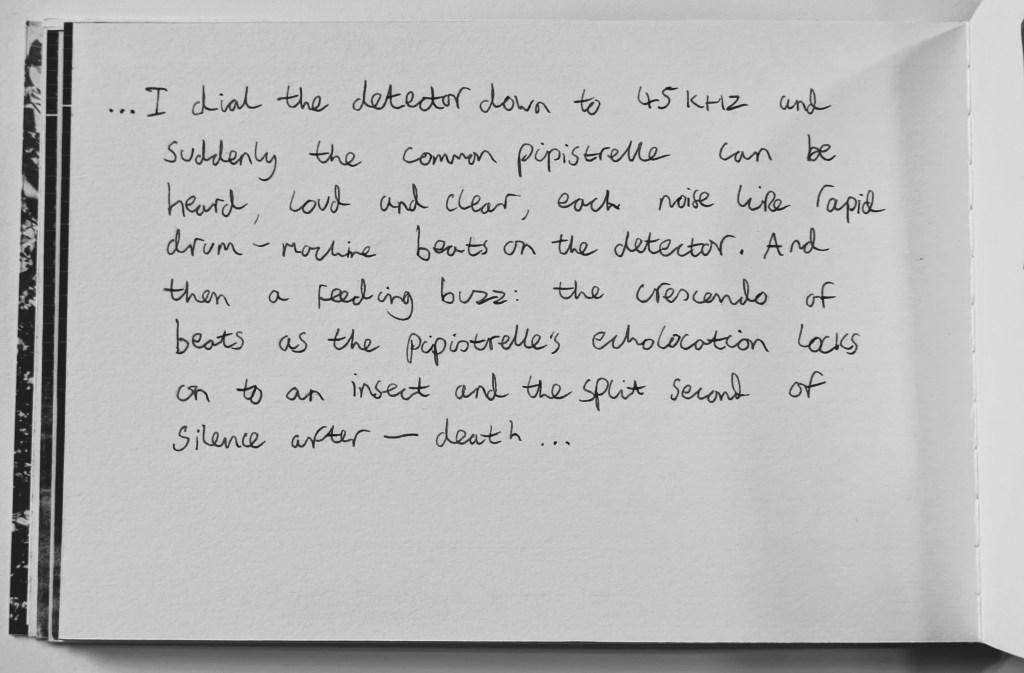 ...I dial the detector down to 45 KHZ and
suddenly the common pipistrelle can be
heard, loud and clear, each noise like rapid
drum-machine beats on the detector. And
then a feeding buzz: the crescendo of
beats as the pipistrelle's echolocation locks
on to an insect and the split second of
silence after — death...